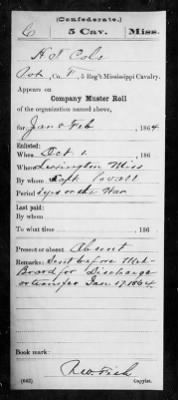 (Confederate.)
C 5 Cav. Miss.
H. T. Cole
Pvt., Co. F, 5 Reg't Mississippi Cavalry.
Appears on
Company Muster Roll
of the organization named above,
for Jan & Feb, 1864
Enlisted:
When Oct 1, 186
Where Lexington Miss
By whom Capt. Wall
Period 3 yrs or the War
Last paid:
By whom
To what time , 186
Present or absent Absent
Remarks: Sent before Med.
Board for Discharge
or transfer Jan 17 1864.
Book mark:
(642) Copyist.